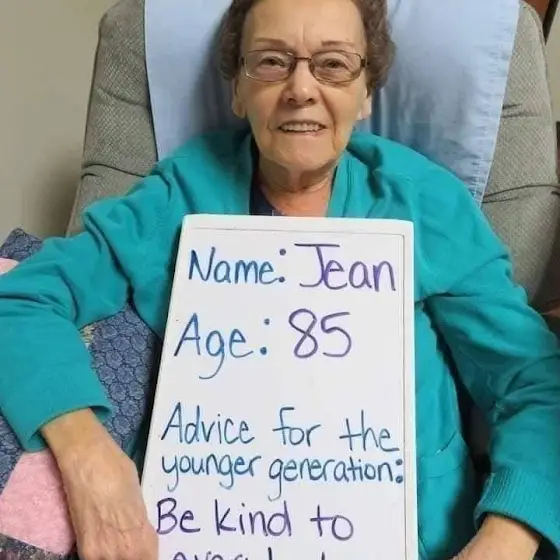 Name: Jean
Age: 85
Advice for the
younger generation:
Be kind to